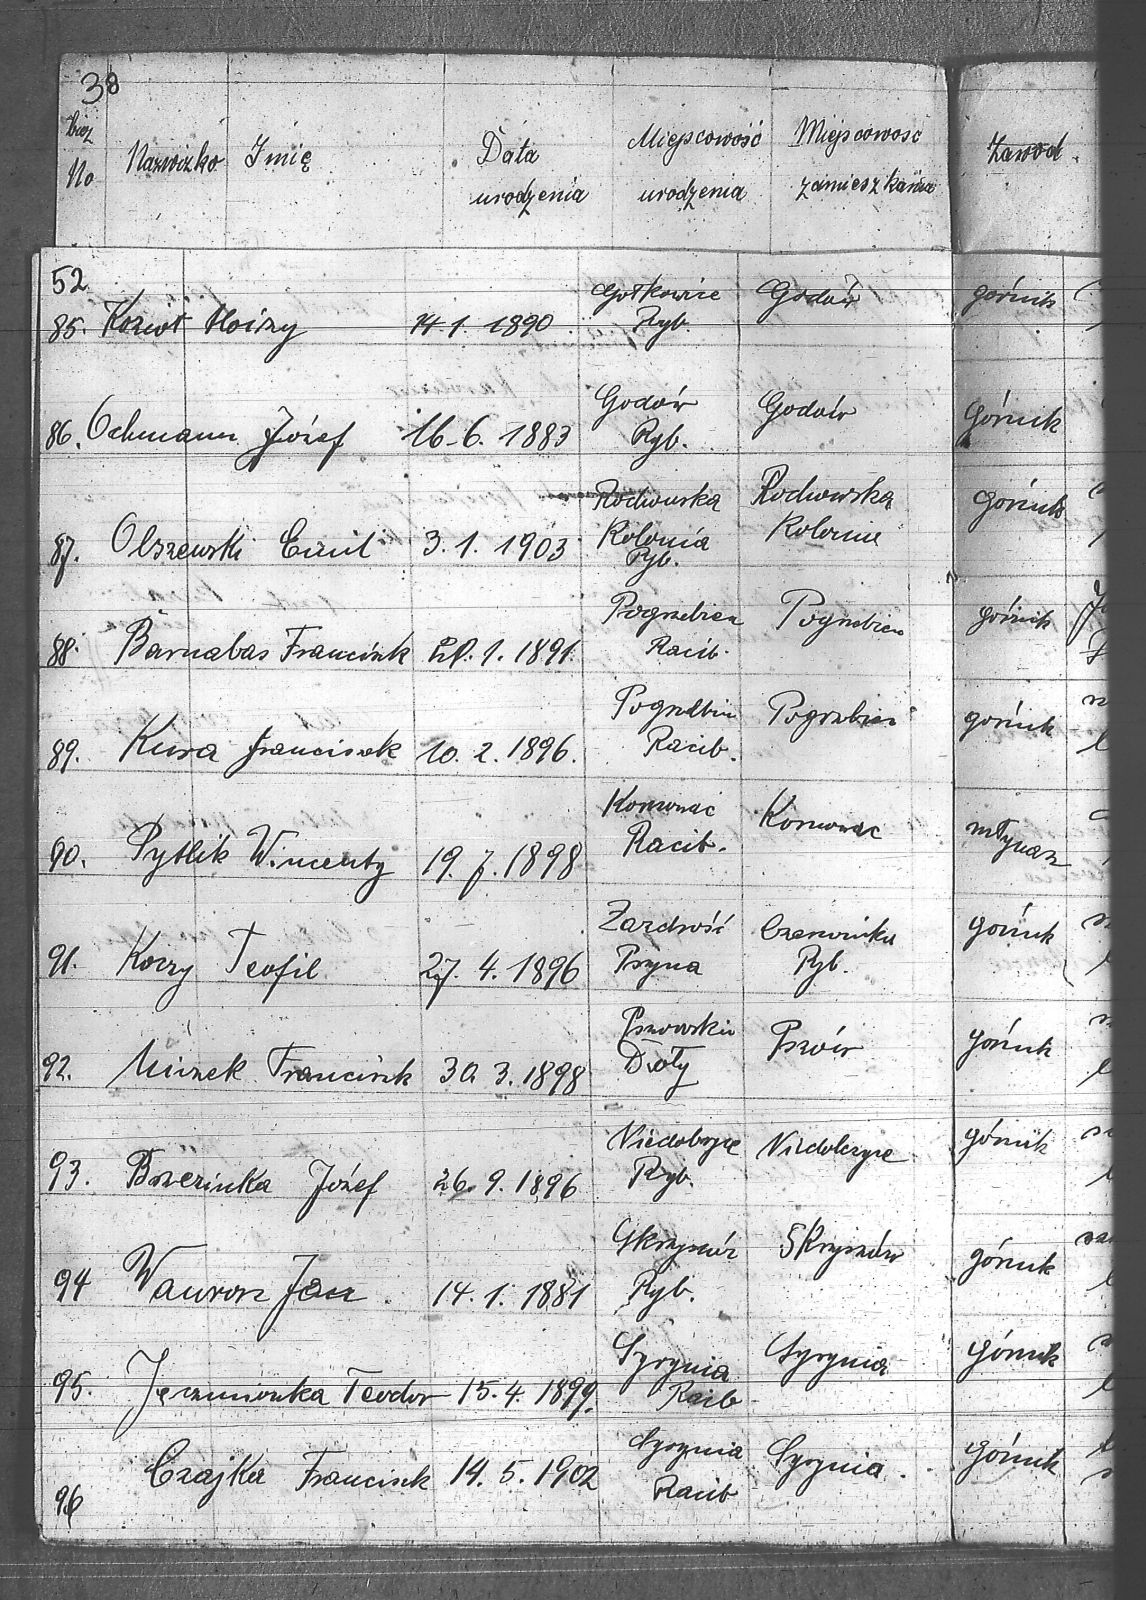 38
No Nazwizko Imię Data urodzenia Miejscowość urodzenia Miejscowość zamieszkania Zawód
52
85. Moizy 14.1. 1890 Gotkowice Ryb. Godów górnik
86. Ochmann Józef 16.6. 1883 Godów Ryb. Godów Górnik
87. Olszewski Emil 3.1. 1903 Kolonia Ryb. Kolonie Górnik
88. Barnabas Franciszek 1. 1891. Pogrzebien Racib. Pogrzebien górnik
89. Kura Franciszek 10.2. 1896. Racib. Pogrzebien górnik
90. Pytlik Wincenty 19.7. 1898 Kornowac Racib. Kornowac młynarz
91. Koczy Teofil 27.4. 1896 Zazdrość Pszyna Ryb. górnik
92. Franciszek 30.3. 1898 Doły Pszów górnik
93. Brzezinka Józef 26.9. 1896 Niedobczyce Ryb. Niedobczyce górnik
94 Wawron Jan 14.1. 1881 Skrzyszów Ryb. Skrzyszów górnik
95. Jęczmionka Teodor 15.4. 1899. Syrynia Racib Syrynia górnik
96 Czajka Franciszek 14.5. 1902 Syrynia Racib Syrynia. górnik